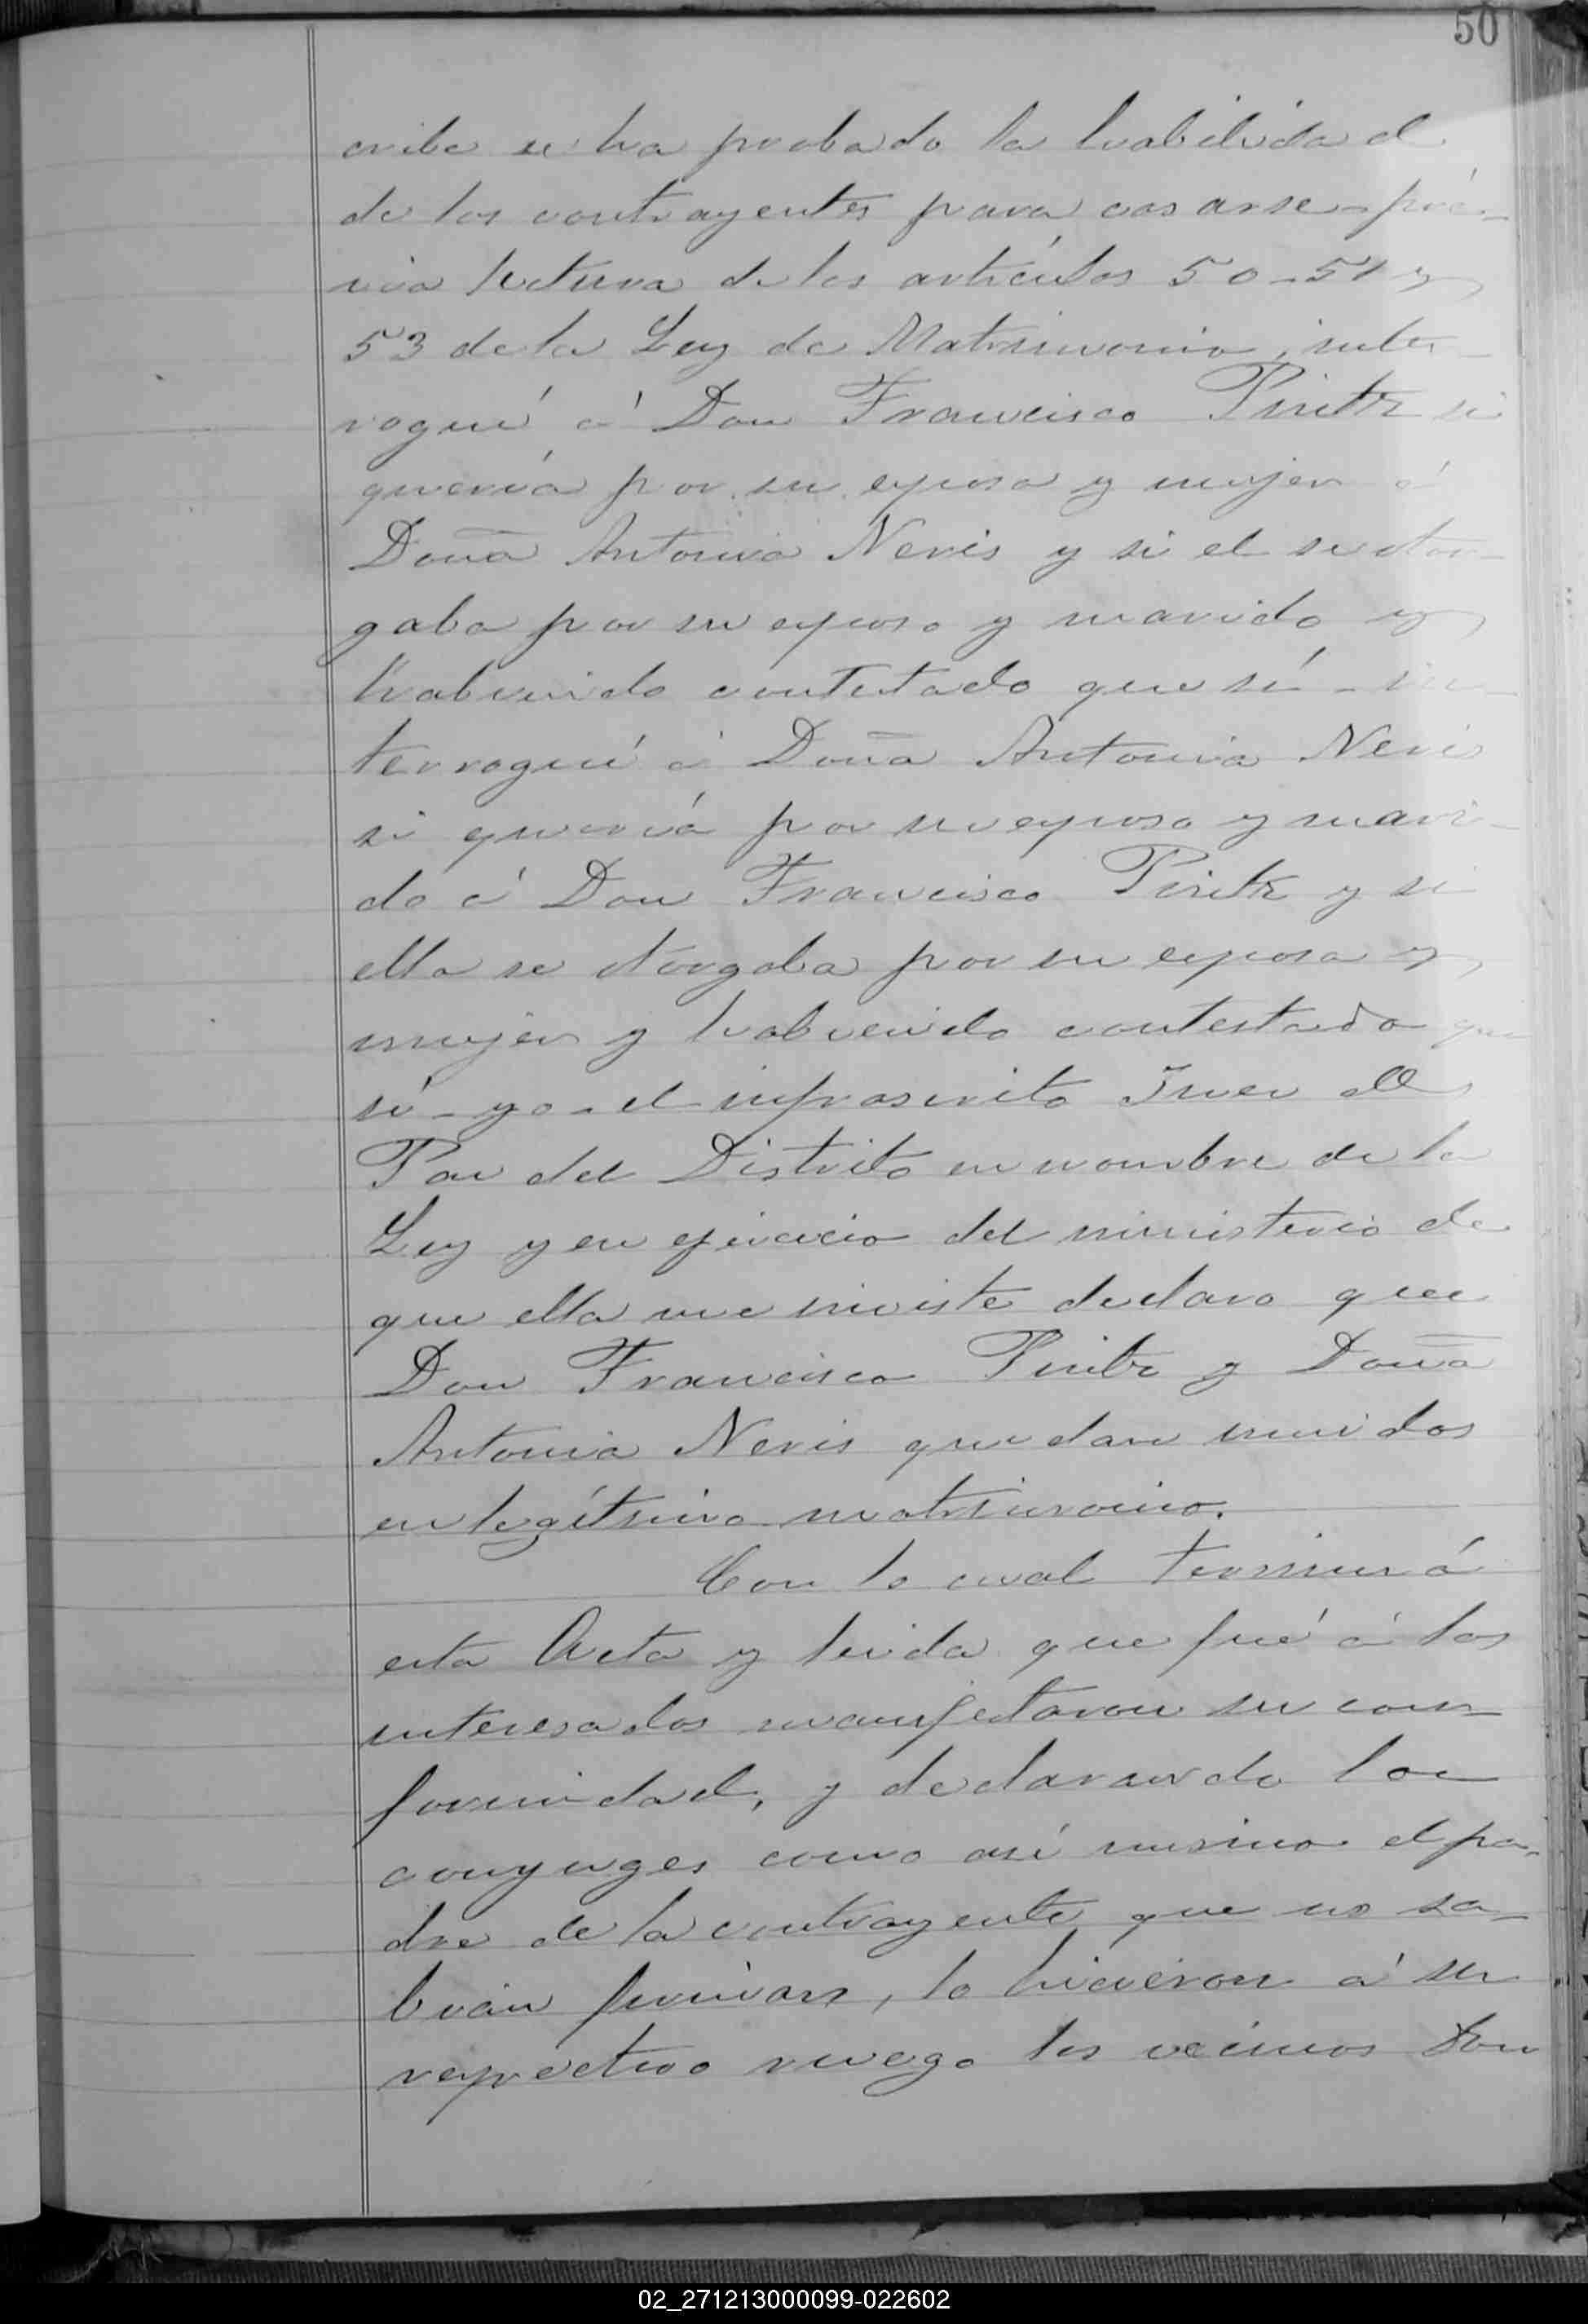 50
cribe se ha probado la habilidad
de los contrayentes para casarse - pré-
via lectura de los artículos 50 - 51 y
53 de la Ley de Matrimonio, inter-
rogué á Don Francisco Piritz si
quería por su esposa y mujer á
Doña Antonia Neris y si el se otor-
gaba por su esposo y marido y
habiendo contestado que sí - in-
terrogué á Doña Antonia Neris
si quería por su esposo y mari-
do á Don Francisco Piritz y si
ella se otorgaba por su esposa y
mujer y habiendo contestado que
sí - yo - el infrascrito Juez de
Paz del Distrito en nombre de la
Ley y en ejercicio del ministerio de
que ella me inviste declaro que
Don Francisco Piritz y Doña
Antonia Neris quedan unidos
en legítimo matrimonio.
Con lo cual terminó
esta Acta y leida que fué á los
interesados manifestaron su con-
formidad, y declarando los
conyuges como asi mismo el pa-
dre de la contrayente que no sa-
bian firmar, lo hicieron á su
respectivo ruego los vecinos Don
02_271213000099-022602